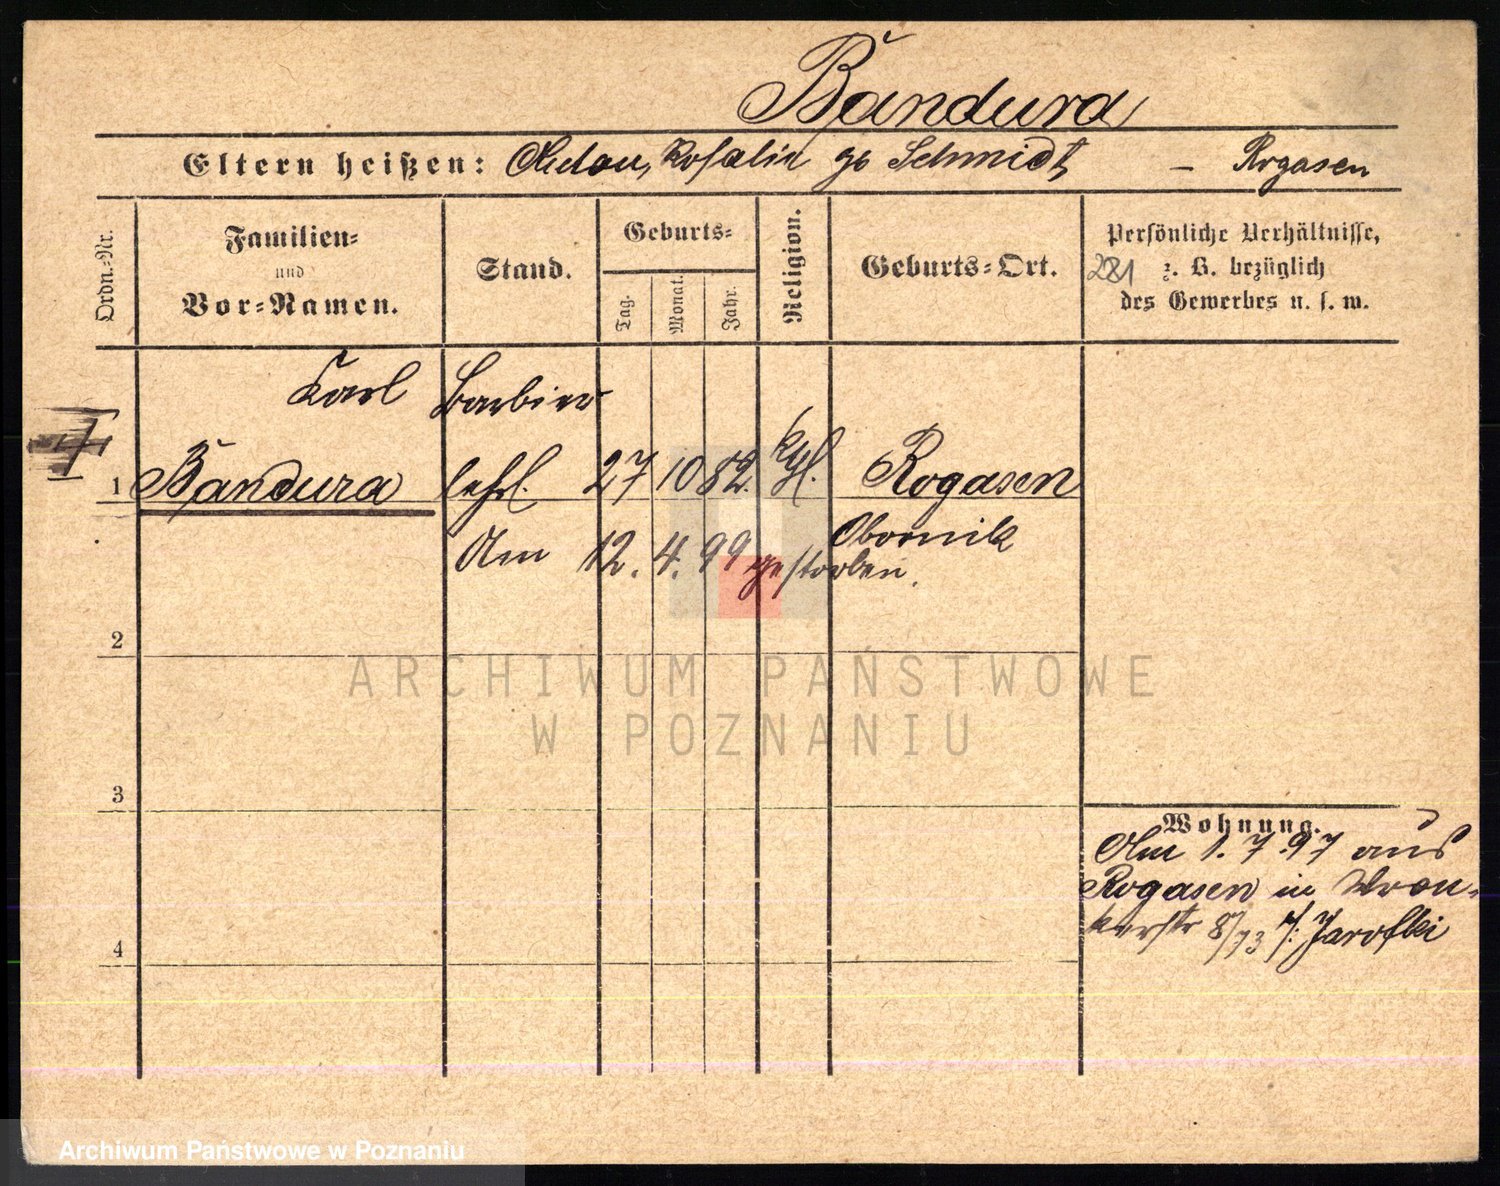 Bandura
Eltern heißen: Anton, Rosalie gb Schmidt – Rogasen
Ordn.-Nr.
Familien-
und
Vor-Namen.
Stand.
Geburts-
Tag.
Monat.
Jahr.
Religion.
Geburts-Ort.
Persönliche Verhältnisse,
281 z. B. bezüglich
des Gewerbes u. s. w.
Karl Barbier
1 Bandura lehrl. 27 10 82. kth. Rogasen
Obornik
Am 12. 4. 99 gestorben.
2
3
4
Wohnung.
Am 1. 7 97 aus
Rogasen in Wron-
kerstr 8/73 b/: Jarofski
ARCHIWUM PAŃSTWOWE
W POZNANIU
Archiwum Państwowe w Poznaniu